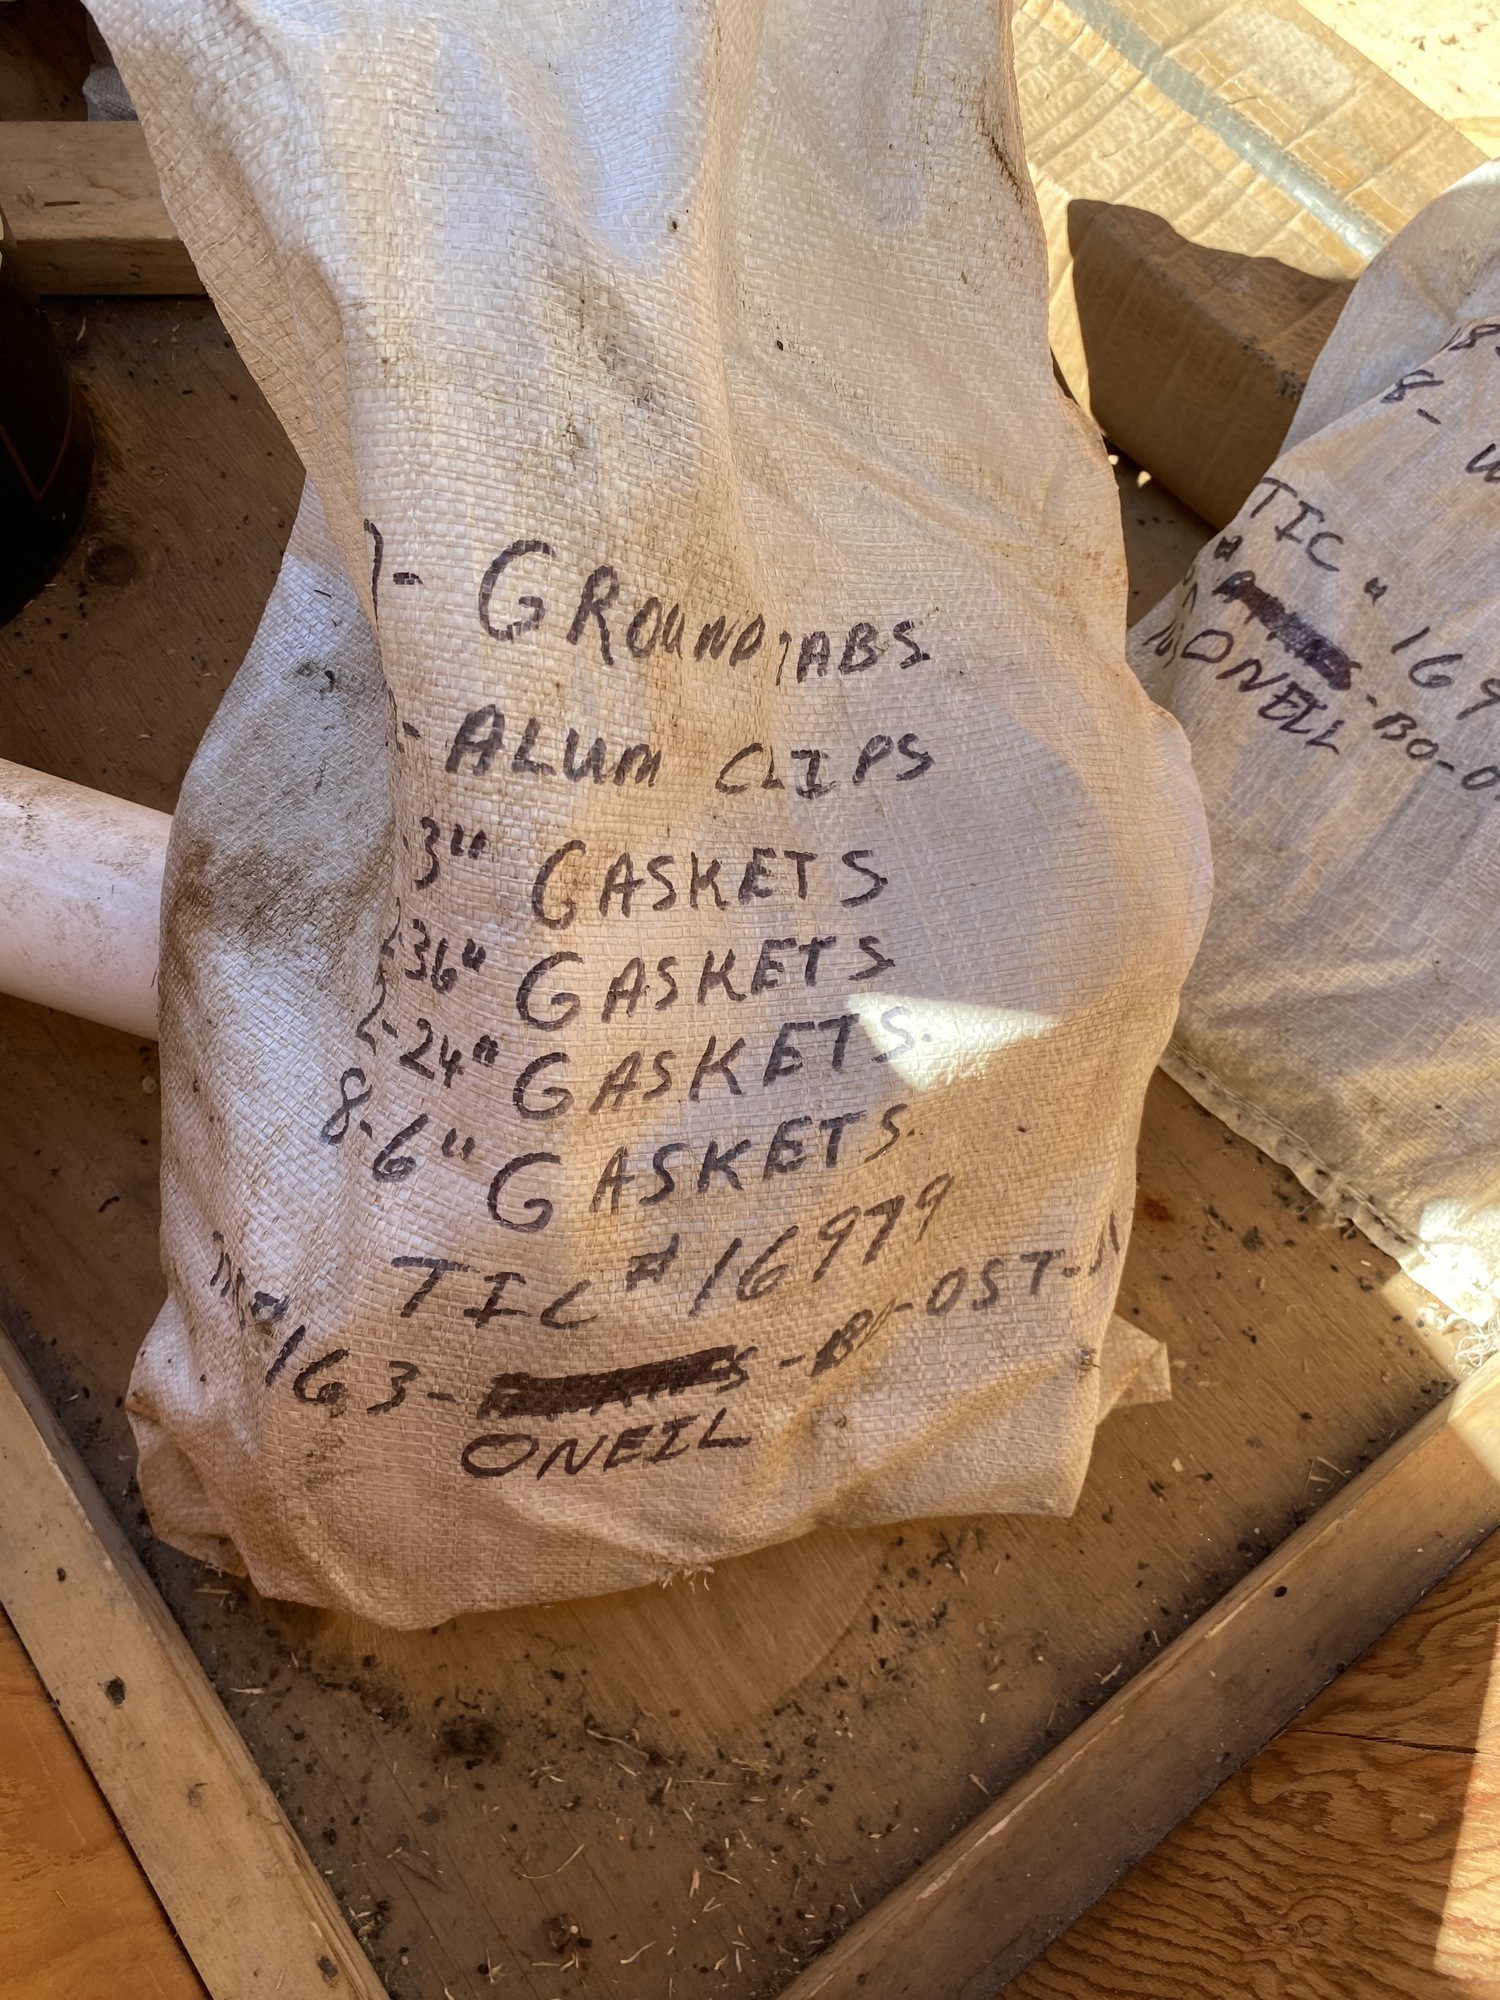 - GROUND TABS
- ALUM CLIPS
3" GASKETS
-36" GASKETS
2-24" GASKETS.
8-6" GASKETS.
TIC # 16979
163- -OST-
ONEIL
8-
TIC # 169
-BO-O
ONEILL